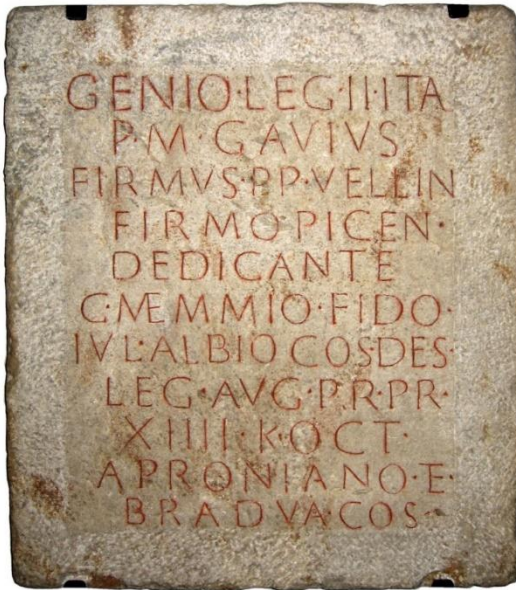 GENIO·LEG·II·ITA
P·M·GAVIVS
FIRMVS·PP·VELEIN
FIRMO·PICEN·
DEDICANTE
C·MEMMIO·FIDO·
IVL·ALBIO COS·DES·
LEG·AVG·P·R·PR·
XIIII·K·OCT·
APRONIANO·E·
BRADVA·COS·